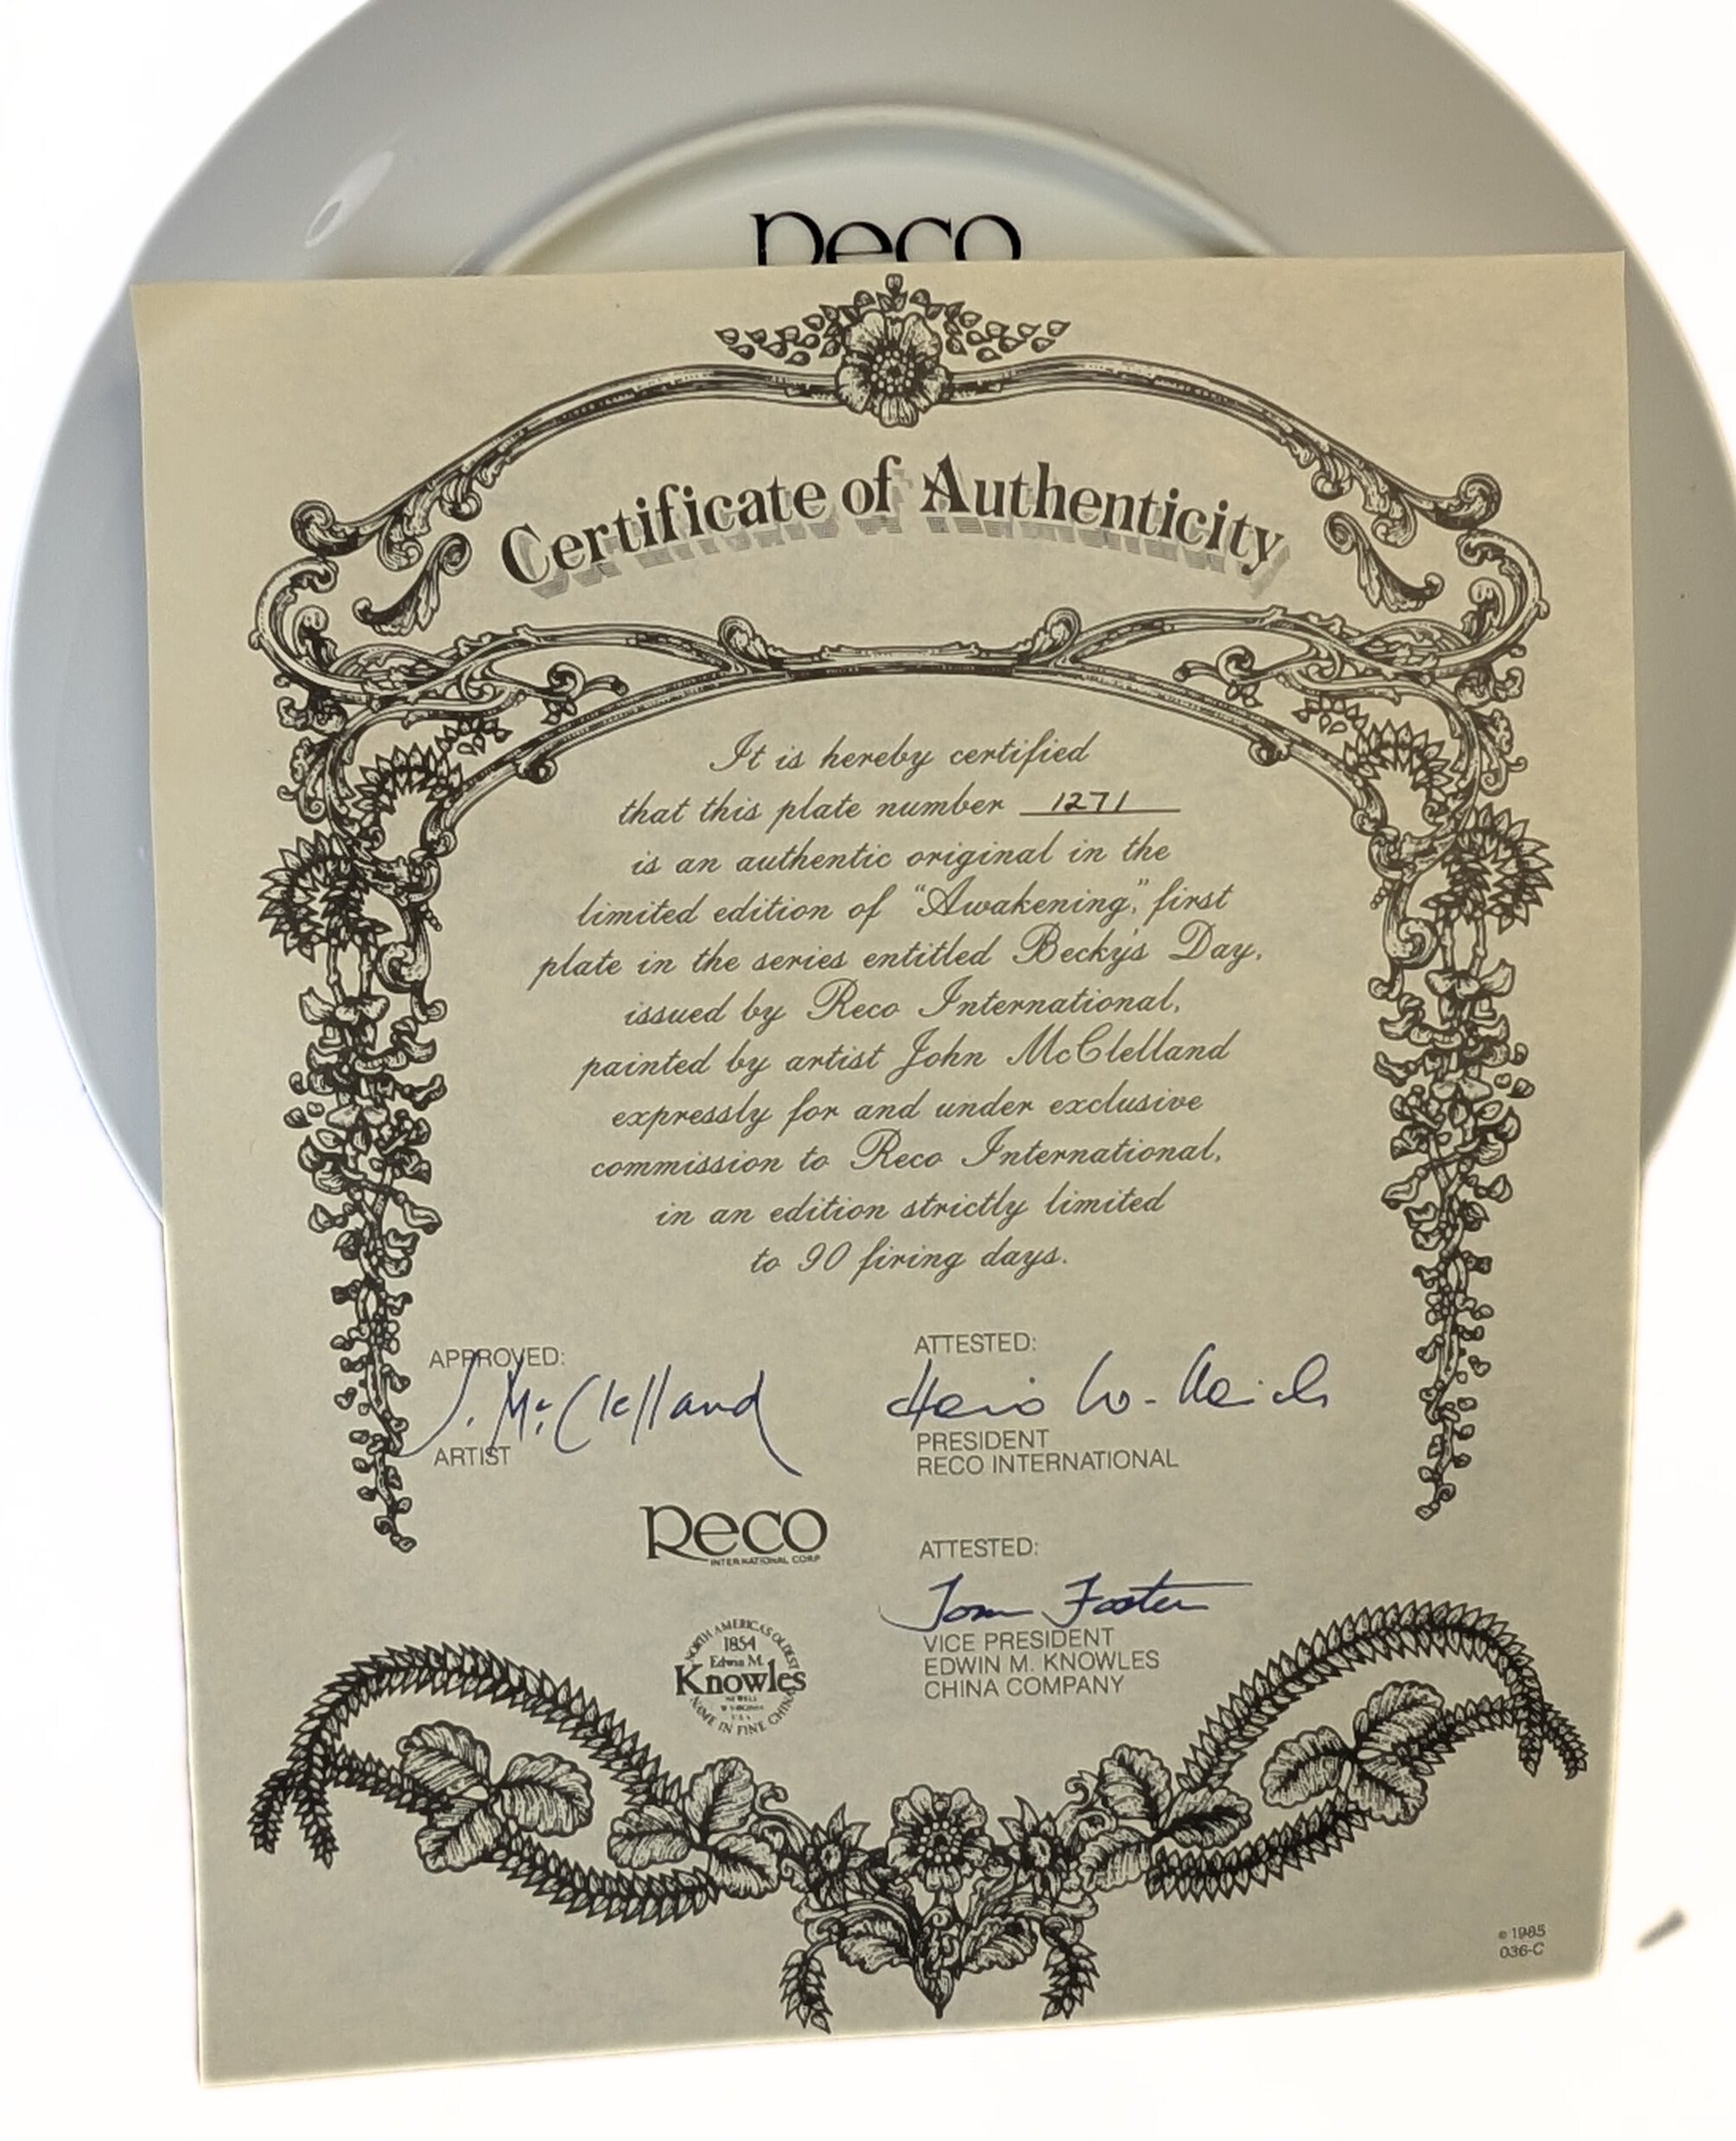 Reco
Certificate of Authenticity
It is hereby certified
that this plate number 1271
is an authentic original in the
limited edition of “Awakening,” first
plate in the series entitled Becky's Day,
issued by Reco International,
painted by artist John McClelland
expressly for and under exclusive
commission to Reco International,
in an edition strictly limited
to 90 firing days.
APPROVED:
J. McClelland
ARTIST
ATTESTED:
PRESIDENT
RECO INTERNATIONAL
Reco
INTERNATIONAL CORP
ATTESTED:
Tom Foster
VICE PRESIDENT
EDWIN M. KNOWLES
CHINA COMPANY
NORTH AMERICA'S OLDEST
1854
Edwin M.
Knowles
NAME IN FINE CHINA
© 1985
036-C